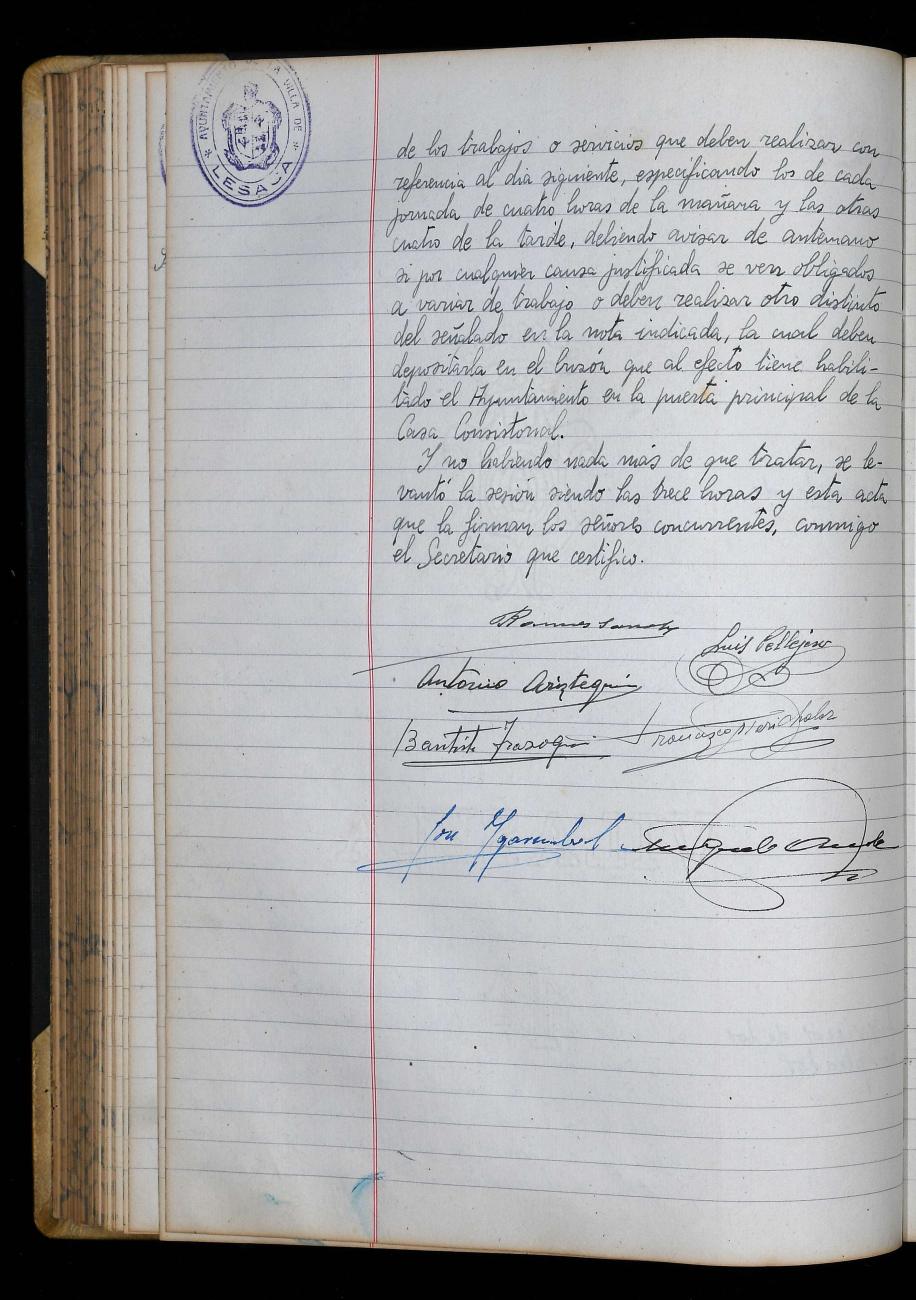 * AYUNTAMIENTO DE LA VILLA DE *
LESACA
de los trabajos o servicios que deben realizar con
referencia al dia siguiente, especificando los de cada
jornada de cuatro horas de la mañana y las otras
cuatro de la tarde, debiendo avisar de antemano
si por cualquier causa justificada se ven obligados
a variar de trabajo o deben realizar otro distinto
del señalado en la nota indicada, la cual deben
depositarla en el buzón que al efecto tiene habili-
tado el Ayuntamiento en la puerta principal de la
Casa Consistorial.
Y no habiendo nada más de que tratar, se le-
vantó la sesión siendo las trece horas y esta acta
que la firman los señores concurrentes, conmigo
el Secretario que certifico.
Luis Pellejero
Antonio Ariztegui
Bautista